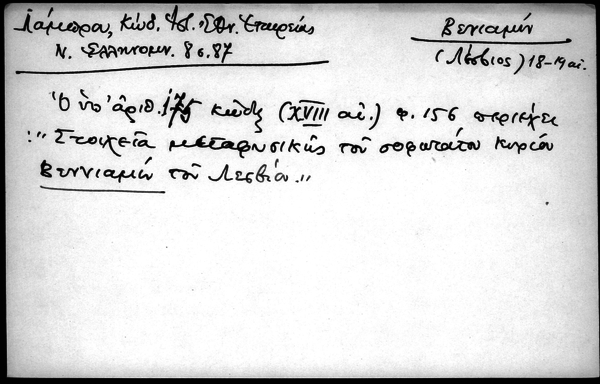 Λάμπρου, Κώδ. Ἱστ. Ἐθν. Ἑταιρείας
Ν. Ἑλληνομν. 8 σ. 87
Βενιαμίν
(Λέσβιος) 18-19 αἰ.
Ὁ ὑπ' ἀριθ. 175 κώδιξ (XVIII αἰ.) φ. 156 περιέχει
:" Στοιχεῖα μεταφυσικῆς τοῦ σοφωτάτου κυρίου
Βεννιαμίν τοῦ Λεσβίου."